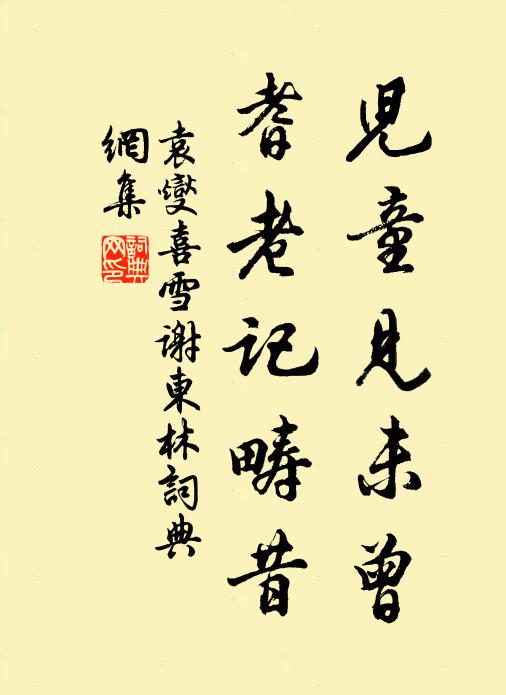 兒童見未曾
耆老記疇昔
袁燮喜雪謝東林詞典
網集
詞典
网印